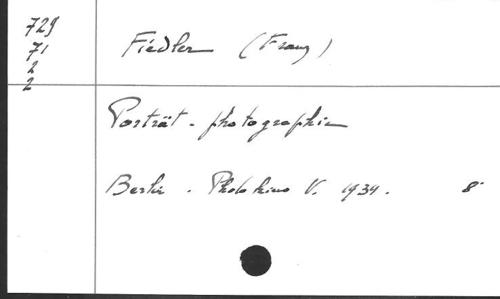 729
71
2
2
Fiedler (Franz)
Porträt-photographie
Berlin. Photokino V. 1934. 8°